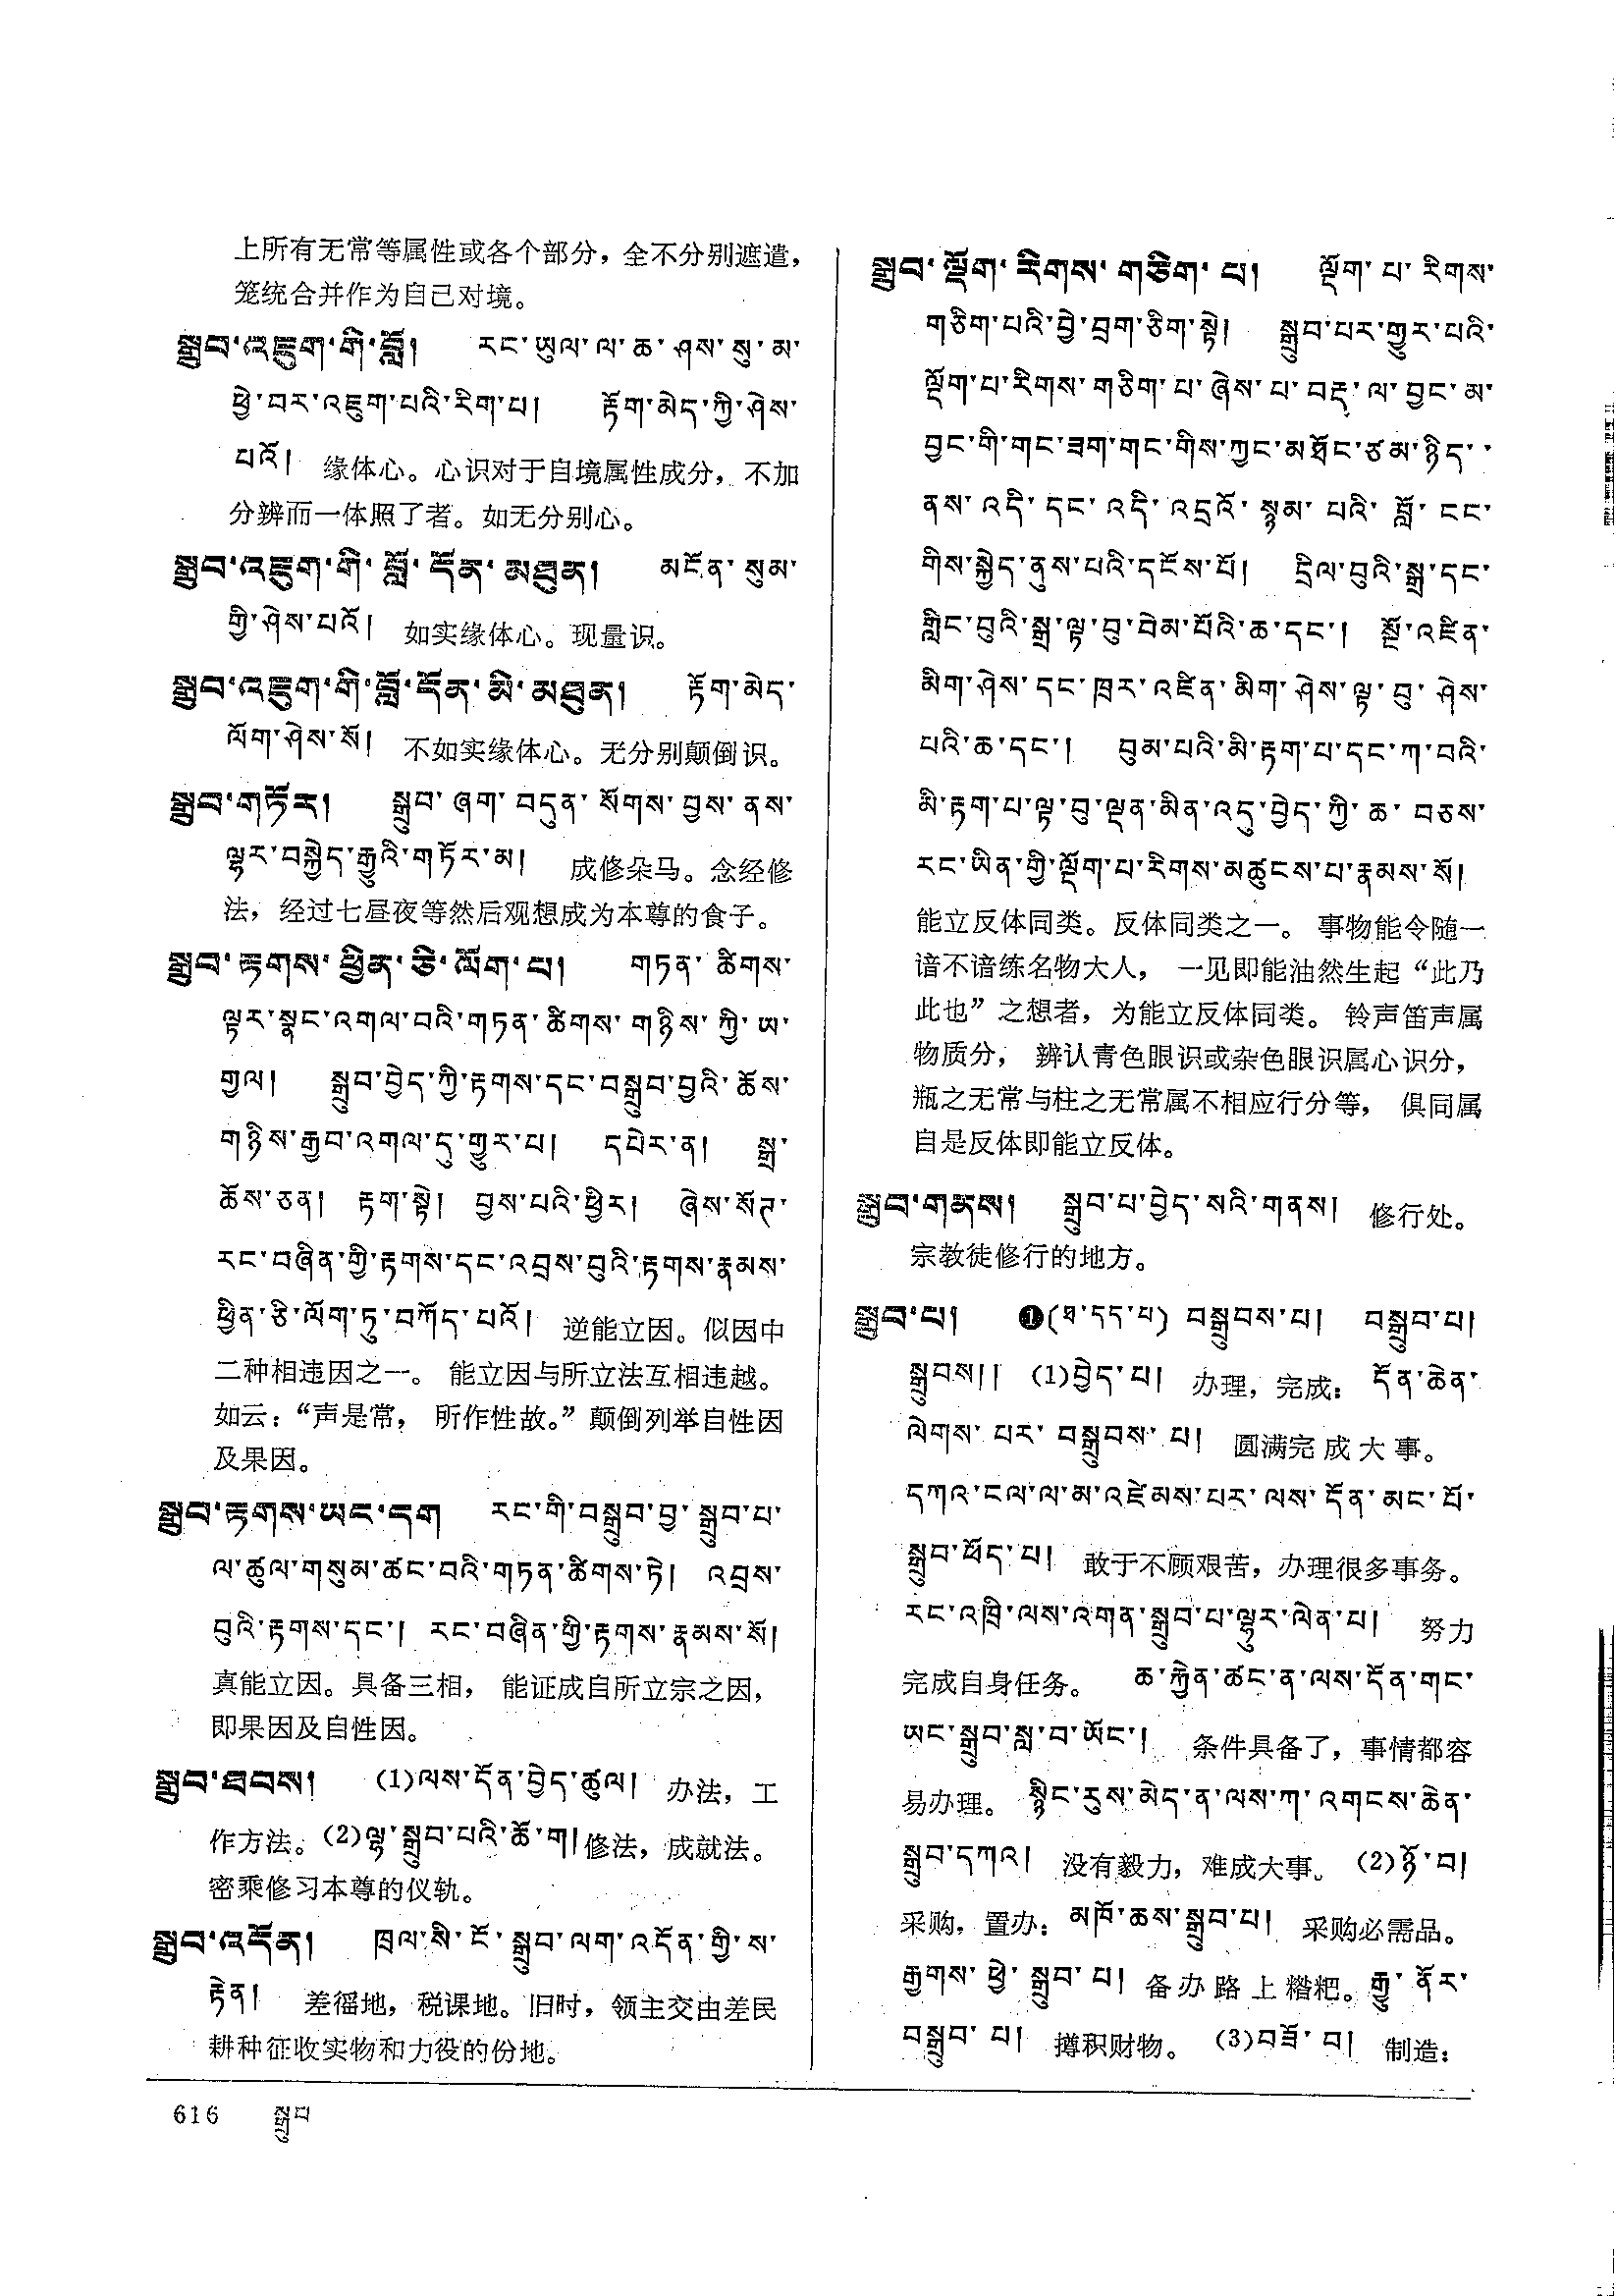 上所有无常等属性或各个部分，全不分别遮遣，
笼统合并作为自己对境。
སྒྲུབ་འཇུག་གི་བློ། རང་ཡུལ་ལ་ཆ་ཤས་སུ་མ་
ཕྱེ་བར་འཇུག་པའི་རིག་པ། རྟོག་མེད་ཀྱི་ཤེས་
པའོ། 缘体心。心识对于自境属性成分，不加
分辨而一体照了者。如无分别心。
སྒྲུབ་འཇུག་གི་བློ་དོན་མཐུན། མངོན་སུམ་
གྱི་ཤེས་པའོ། 如实缘体心。现量识。
སྒྲུབ་འཇུག་གི་བློ་དོན་མི་མཐུན། རྟོག་མེད་
ལོག་ཤེས་སོ། 不如实缘体心。无分别颠倒识。
སྒྲུབ་གཏོར། སྒྲུབ་ཞག་བདུན་སོགས་བྱས་ནས་
ལྷར་བསྐྱེད་རྒྱུའི་གཏོར་མ། 成修朵马。念经修
法，经过七昼夜等然后观想成为本尊的食子。
སྒྲུབ་རྟགས་ཕྱིན་ཅི་ལོག་པ། གཏན་ཚིགས་
ལྟར་སྣང་འགལ་བའི་གཏན་ཚིགས་གཉིས་ཀྱི་ཡ་
གྱལ། སྒྲུབ་བྱེད་ཀྱི་རྟགས་དང་བསྒྲུབ་བྱའི་ཆོས་
གཉིས་རྒྱབ་འགལ་དུ་གྱུར་པ། དཔེར་ན། སྒྲ་
ཆོས་ཅན། རྟག་སྟེ། བྱས་པའི་ཕྱིར། ཞེས་སོཊ་
རང་བཞིན་གྱི་རྟགས་དང་འབྲས་བུའི་རྟགས་རྣམས་
ཕྱིན་ཅི་ལོག་ཏུ་བཀོད་པའོ། 逆能立因。似因中
二种相违因之一。 能立因与所立法互相违越。
如云：“声是常， 所作性故。”颠倒列举自性因
及果因。
སྒྲུབ་རྟགས་ཡང་དག རང་གི་བསྒྲུབ་བྱ་སྒྲུབ་པ་
ལ་ཚུལ་གསུམ་ཚང་བའི་གཏན་ཚིགས་ཏེ། འབྲས་
བུའི་རྟགས་དང་། རང་བཞིན་གྱི་རྟགས་རྣམས་སོ།
真能立因。具备三相， 能证成自所立宗之因，
即果因及自性因。
སྒྲུབ་ཐབས། (1)ལས་དོན་བྱེད་ཚུལ། 办法，工
作方法。(2)ལྷ་སྒྲུབ་པའི་ཆོ་ག།修法，成就法。
密乘修习本尊的仪轨。
སྒྲུབ་འདོན། ཁྲལ་སི་ངོ་སྒྲུབ་ལག་འདོན་གྱི་ས་
རྟེན། 差徭地，税课地。旧时，领主交由差民
耕种征收实物和力役的份地。
སྒྲུབ་ལྡོག་རིགས་གཅིག་པ། ལྡོག་པ་རིགས་
གཅིག་པའི་བྱེ་བྲག་ཅིག་སྟེ། སྒྲུབ་པར་གྱུར་པའི་
ལྡོག་པ་རིགས་གཅིག་པ་ཞེས་པ་བརྡ་ལ་བྱང་མ་
བྱང་གི་གང་ཟག་གང་གིས་ཀྱང་མཐོང་ཙམ་ཉིད་
ནས་འདི་དང་འདི་འདྲའོ་སྙམ་པའི་བློ་ངང་
གིས་སྐྱེད་ནུས་པའི་དངོས་པོ། དྲིལ་བུའི་སྒྲ་དང་
གླིང་བུའི་སྒྲ་ལྟ་བུ་བེམ་པོའི་ཆ་དང་། སྔོ་འཛིན་
མིག་ཤེས་དང་ཁྲར་འཛིན་མིག་ཤེས་ལྟ་བུ་ཤེས་
པའི་ཆ་དང་། བུམ་པའི་མི་རྟག་པ་དང་ཀ་བའི་
མི་རྟག་པ་ལྟ་བུ་ལྡན་མིན་འདུ་བྱེད་ཀྱི་ཆ་བཅས་
རང་ཡིན་གྱི་ལྡོག་པ་རིགས་མཚུངས་པ་རྣམས་སོ།
能立反体同类。反体同类之一。 事物能令随一
谙不谙练名物大人， 一见即能油然生起“此乃
此也”之想者，为能立反体同类。 铃声笛声属
物质分， 辨认青色眼识或杂色眼识属心识分，
瓶之无常与柱之无常属不相应行分等， 俱同属
自是反体即能立反体。
སྒྲུབ་གནས། སྒྲུབ་པ་བྱེད་སའི་གནས། 修行处。
宗教徒修行的地方。
སྒྲུབ་པ། ❶(ཐ་དད་པ) བསྒྲུབས་པ། བསྒྲུབ་པ།
སྒྲུབས།། (1)བྱེད་པ། 办理，完成：དོན་ཆེན་
ལེགས་པར་བསྒྲུབས་པ། 圆满完成大事。
དཀའ་ངལ་ལ་མ་འཛེམས་པར་ལས་དོན་མང་པོ་
སྒྲུབ་ཕོད་པ། 敢于不顾艰苦，办理很多事务。
རང་འཁྲི་ལས་འགན་སྒྲུབ་པ་ལྷུར་ལེན་པ། 努力
完成自身任务。 ཆ་རྐྱེན་ཚང་ན་ལས་དོན་གང་
ཡང་སྒྲུབ་སླ་བ་ཡོང་། 条件具备了，事情都容
易办理。 སྙིང་རུས་མེད་ན་ལས་ཀ་འགངས་ཆེན་
སྒྲུབ་དཀའ། 没有毅力，难成大事。 (2)ཉོ་བ།
采购，置办：མཁོ་ཆས་སྒྲུབ་པ། 采购必需品。
རྒྱགས་ཕྱེ་སྒྲུབ་པ། 备办路上糌粑。རྒྱུ་ནོར་
བསྒྲུབ་པ། 撙积财物。 (3)བཟོ་བ། 制造：
616 སྒྲུབ